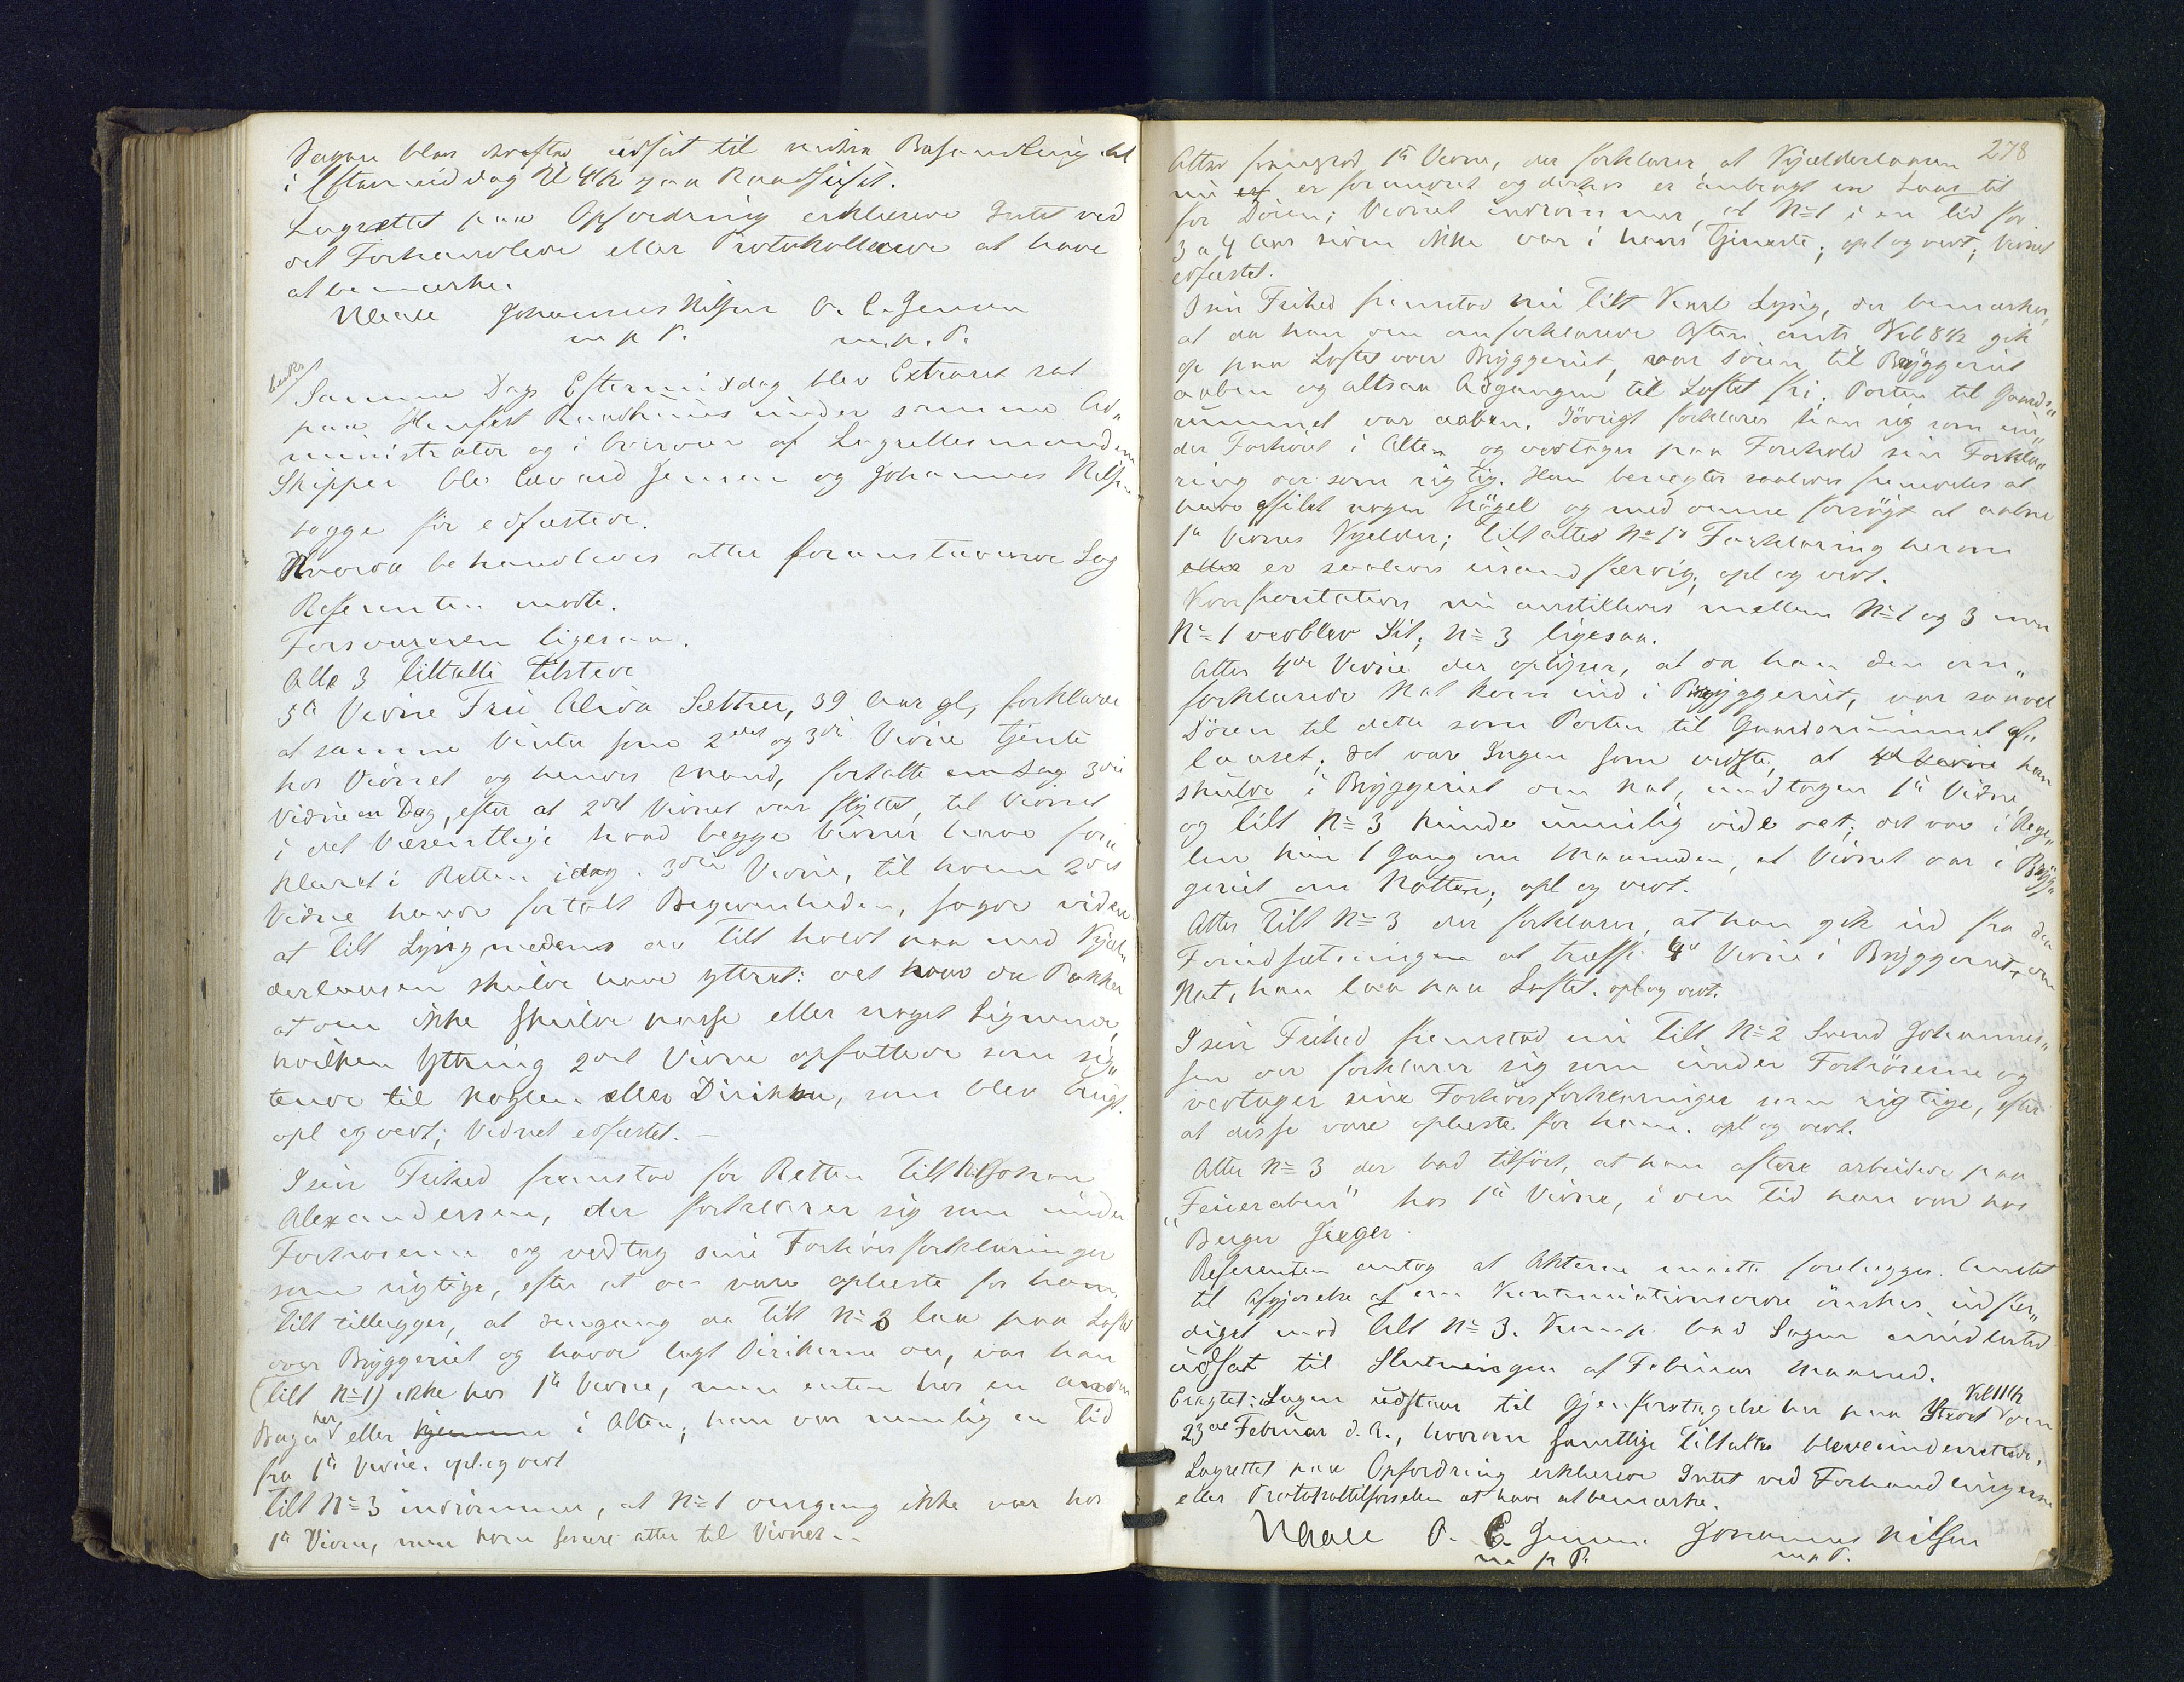 Sagen blev derefter udsat til videre Behandling
i Eftermiddag Kl 4½ paa Raadhuset.
Lagrettet paa Opfordring erklærede Intet ved
det Forhandlede eller Protokollerede at have
at bemærke.
Johannes Nilsen O. C. Jensen
m. p. P. m. p. P.
Samme Dags Eftermiddag blev Extraret sat
paa Hamfest Raadhuus under samme Ad„
ministrator og i Overvær af Lagrettesmændene
Skipper Ole Edvard Jensen og Johannes Nilsen
begge før edfæstede.
Hvorda behandledes atter foranstaaende Sag
Referenten mødte.
Forsvareren ligesaa.
Alle 3 Tiltalte tilstede
5te Vidne Fru Alida Sæther, 39 Aar gl, forklarer
at samme Vinter som 2det og 3die Vidne tjente
hos Vidnet og hendes Mand, fortalte 3die
Vidne en Dag, efter at 2det Vidnet var flyttet, til Vidnet
i det Væsentlige hvad begge Vidner have for„
klaret i Retten idag. 3die Vidne, til hvem 2det
Vidne havde fortalt Begivenheden, sagde videre
at Tilt Lysig medens de Tilt holdt paa med Kjæl„
derlaasen skulde have yttret: det var da Pokker
at den ikke skulde passe eller noget Lignende,
hvilken Yttring 2det Vidne opfattede som sig„
tende til Nøglen eller Dirikken, som blev brugt.
opl og vedt; Vidnet edfæstet. —
I sin Frihed fremstod for Retten Tilt No 1 Johan
Alexandersen, der forklarer sig som under
Forhørerne og vedtog sine Forhørsforklaringer
som rigtige, efter at de vare oplæste for ham.
Tilt tillægger, at dengang da Tilt No 3 laa paa Loftet
over Bryggeriet og havde lagt Dirikerne der, var han
(Tilt No 1) ikke hos 1te Vidne, men enten hos en anden
Bager her eller hjemme i Alten; han var nemlig en Tid
fra 1te Vidne. opl. og vedt
Tilt No 3 indrømmer, at No 1 dengang ikke var hos
1te Vidne, men kom senere atter til Vidnet. —
278
Atter fremstod 1te Vidne, der forklarer at Kjælderlaasen
nu er forandret og derhos er anbragt en Laas til
for Døren; Vidnet indrømmer, at No 1 i en Tid for
3 a 4 Aar siden ikke var i hans Tjeneste; opl og vedt, Vidnet
edfæstet.
I sin Frihed fremstod nu Tilt Karl Lysig, der bemærker,
at da han den omforklarede Aften omtr Kl 8½ gik
op paa Loftet over Bryggeriet, var Døren til Bryggeriet
aaben og altsaa Adgangen til Loftet fri. Porten til Gaards„
rummet var aaben. Iøvrigt forklarer han sig som un„
der Forhøret i Alten og vedtager paa Forehold sin Forkla„
ring der som rigtig. Han benegter saaledes fremdeles at
have filet nogen Nøgel og med denne forsøgt at aabne
1te Vidnes Kjelder; Tiltaltes No 1s Forklaring herom
er saaledes usandfærdig. opl og vedt.
Konfrontation nu anstilledes mellem No 1 og 3 men
No 1 vedblev Sit; No 3 ligesaa.
Atter 4de Vidne der oplyser, at da han den om„
forklarede Nat kom ind i Bryggeriet, var saavel
Døren til dette som Porten til Gaardsrummet af„
laaset; det var Ingen som vidste, at han
skulde i Bryggeriet om Nat, undtagen 1te Vidne
og Tilt No 3 kunde umulig vide det; det var i Rege„
len kun 1 Gang om Maaneden, at Vidnet var i Bryg„
geriet om Natten; opl og vedt.
Atter Tilt No 3 der forklarer, at han gik ud fra den
Forudsætningen at træffe 4de Vidne i Bryggeriet, om
Nat, han laa paa Loftet. opl og vedt.
I sin Frihed fremstod nu Tilt No 2 Svend Johannes„
sen der forklarer sig som under Forhørerne og
vedtager sine Forhørsforklaringer som rigtige, efter
at disse vare oplæste for ham. opl og vedt.
Atter No 3 der bad tilført, at han oftere arbeidede paa
"Feieraben" hos 1te Vidne, i den Tid han var hos
Bager Jæger.
Referenten antog at Akterne maatte forelægges Amtet
til Afgjørelse af om Kontinuationsordre ønskes udfær„
diget mod Tilt No 3. Komp. bad Sagen imidlertid
udsat til Slutningen af Februar Maaned.
Eragtet: Sagen udstaar til Gjenforetagelse her paa Stedet Kl 11½ den
23de Februar d. A., hvorom samtlige Tiltalte bleve underrettede.
Lagrettet paa Opfordring erklærede Intet ved Forhandlingerne
eller Protokoltilførselen at have at bemærke.
O. E. Jensen Johannes Nilsen
m p P. m p P.